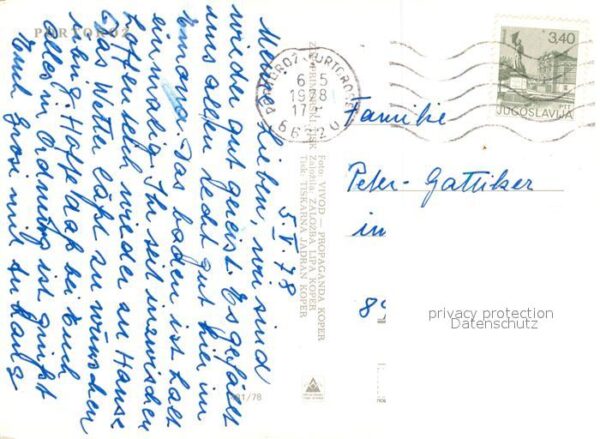 PORTOROŽ
5. V. 78.
Meine Lieben, wir sind
wieder gut gereist. Es gefällt
uns allen sehr gut hier im
Emona. Das baden ist halt
einmalig. Ihr seit inzwischen
hoffentlich wieder zu Hause
Das Wetter läßt zu wünschen
übrig. Hoffe daß bei Euch
alles in Ordnung ist grüßt
Euch Grosi mit
Foto: VIVOD — PROPAGANDA KOPER
Založila: ZALOŽBA LIPA KOPER
Tisk: TISKARNA JADRAN KOPER
/78
6 5
1978
17
66320
3,40
JUGOSLAVIJA
Familie
Peter-Gattiker
in
89
privacy protection
Datenschutz